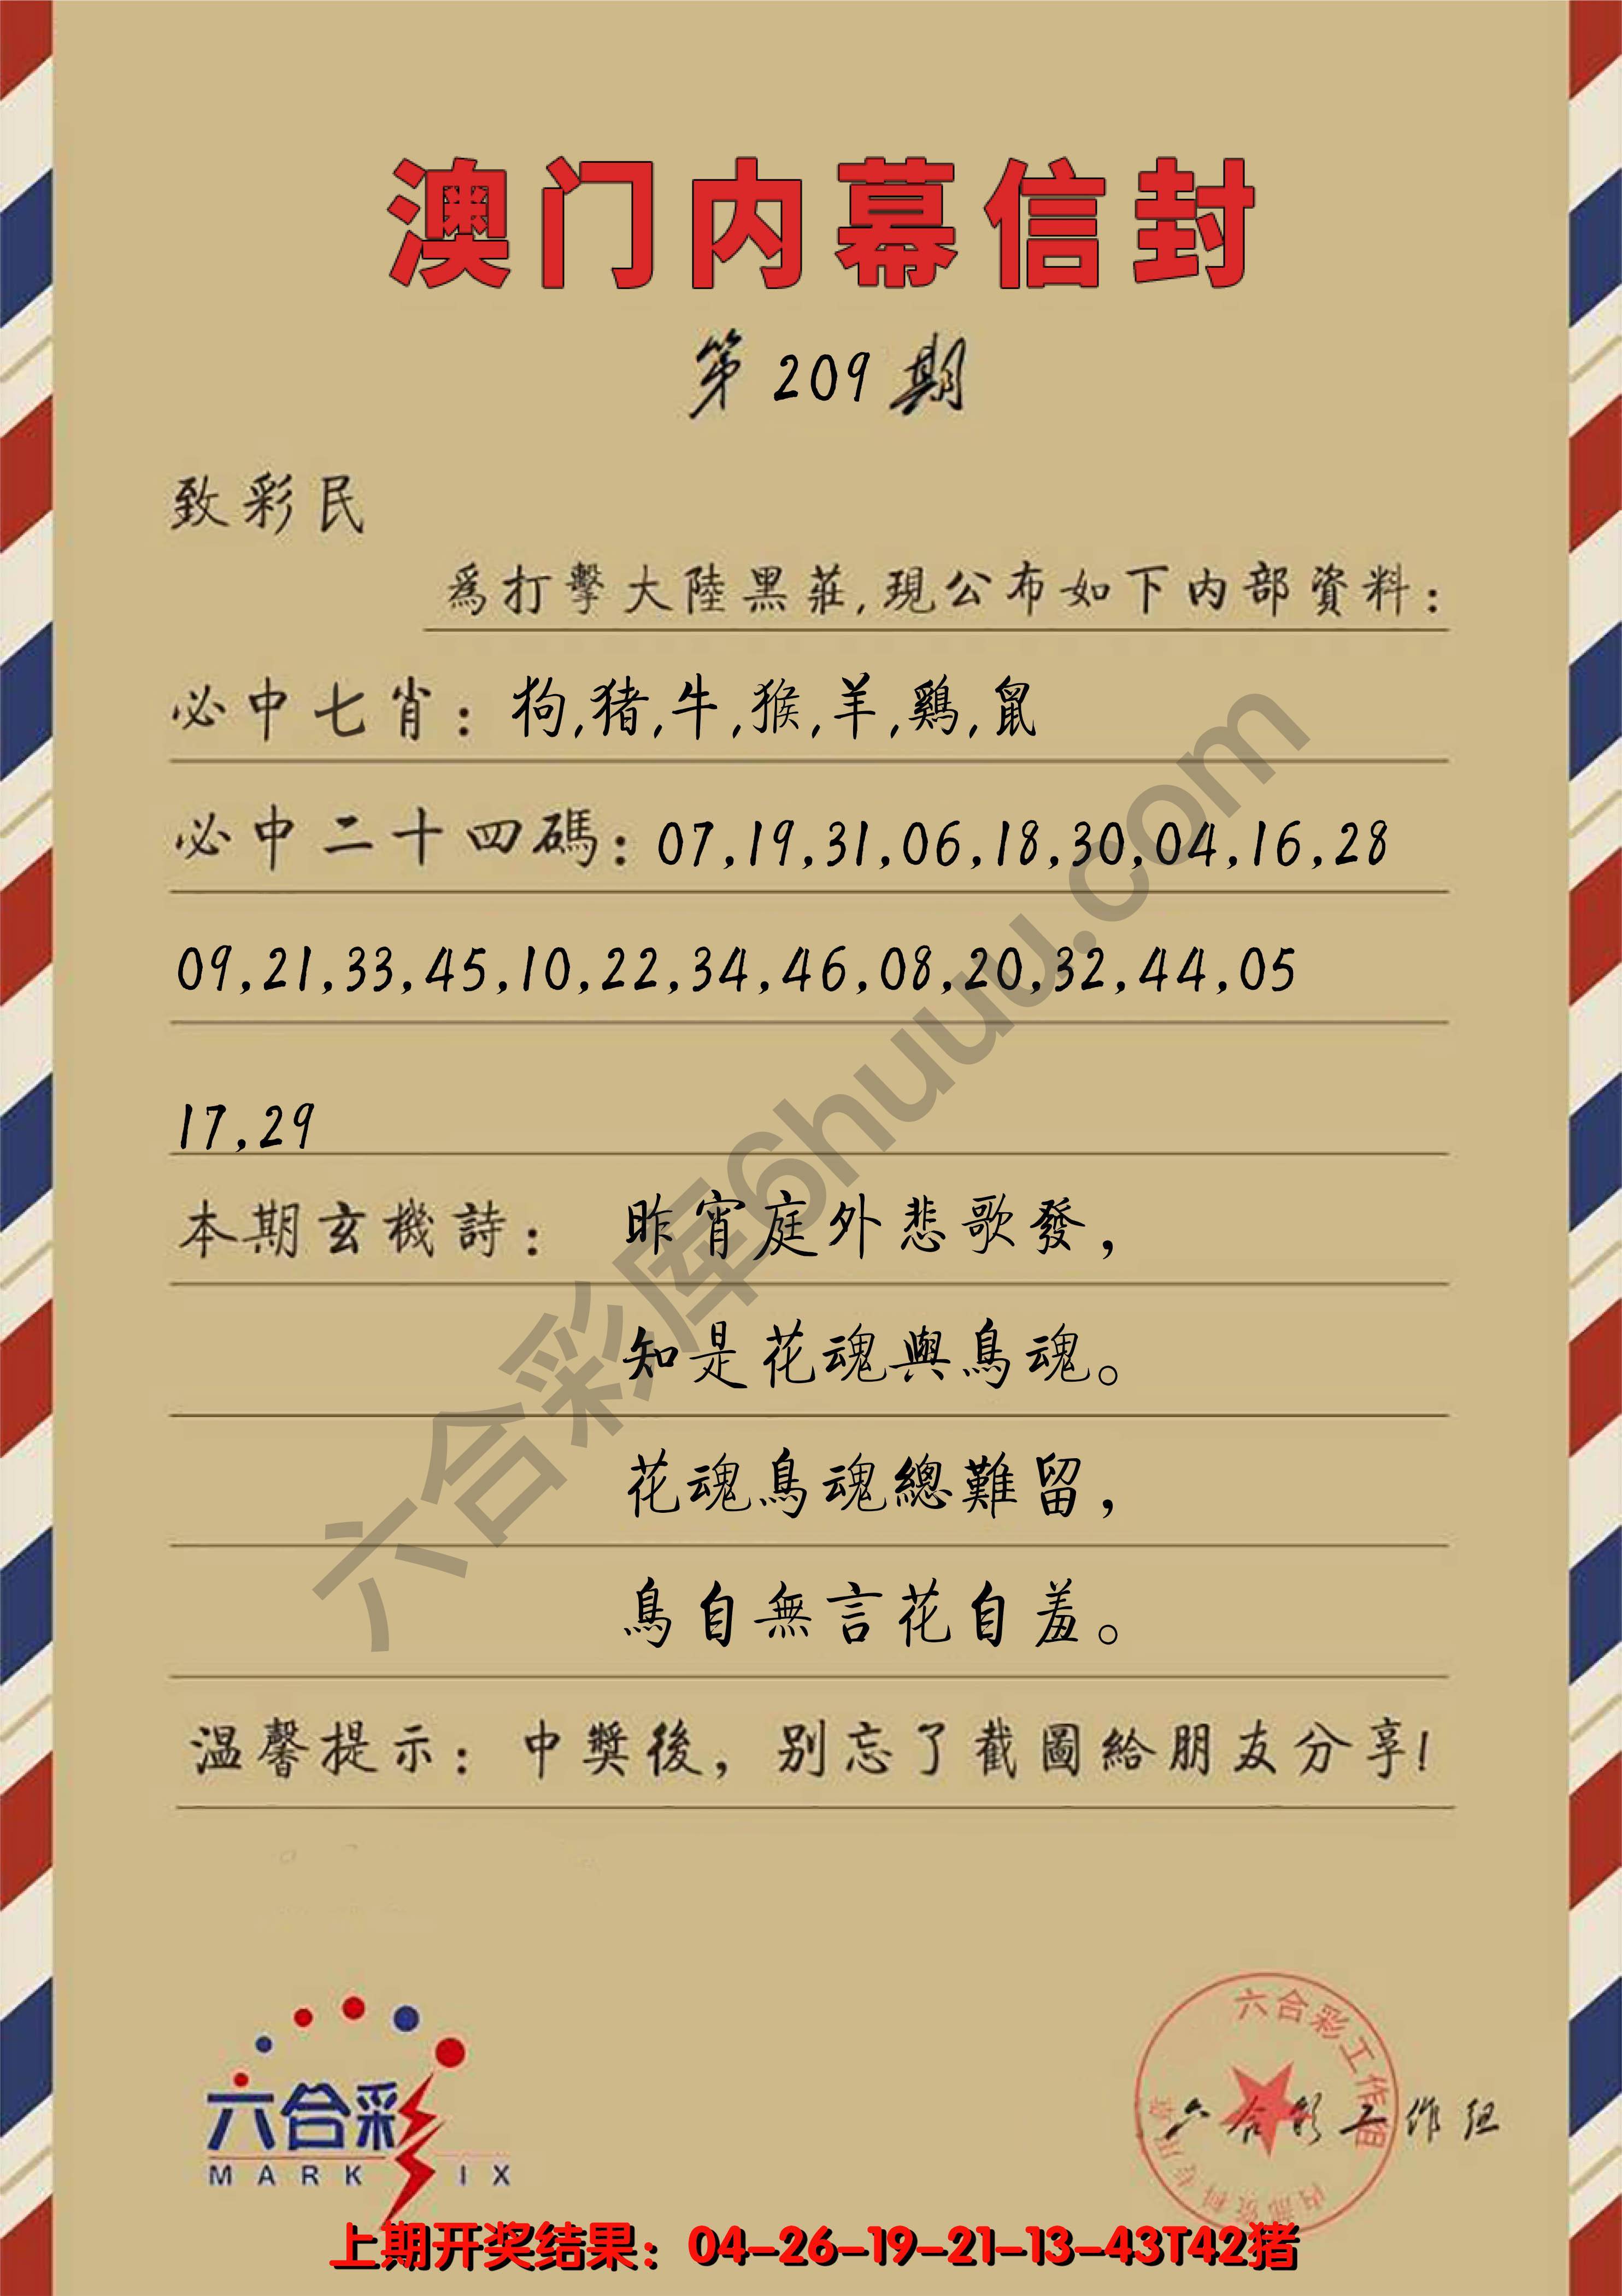 澳门内幕信封
第209期
致彩民
爲打擊大陸黑莊,現公布如下内部資料:
必中七肖:狗,猪,牛,猴,羊,鷄,鼠
必中二十四碼:07,19,31,06,18,30,04,16,28
09,21,33,45,10,22,34,46,08,20,32,44,05
17,29
本期玄機詩:昨宵庭外悲歌發,
知是花魂與鳥魂。
花魂鳥魂總難留,
鳥自無言花自羞。
温馨提示:中獎後,别忘了截圖給朋友分享!
六合彩库6huuu.com
六合彩
MARK IX
六合彩工作组
内部资料专用章
六合彩工作组
上期开奖结果:04-26-19-21-13-43T42猪